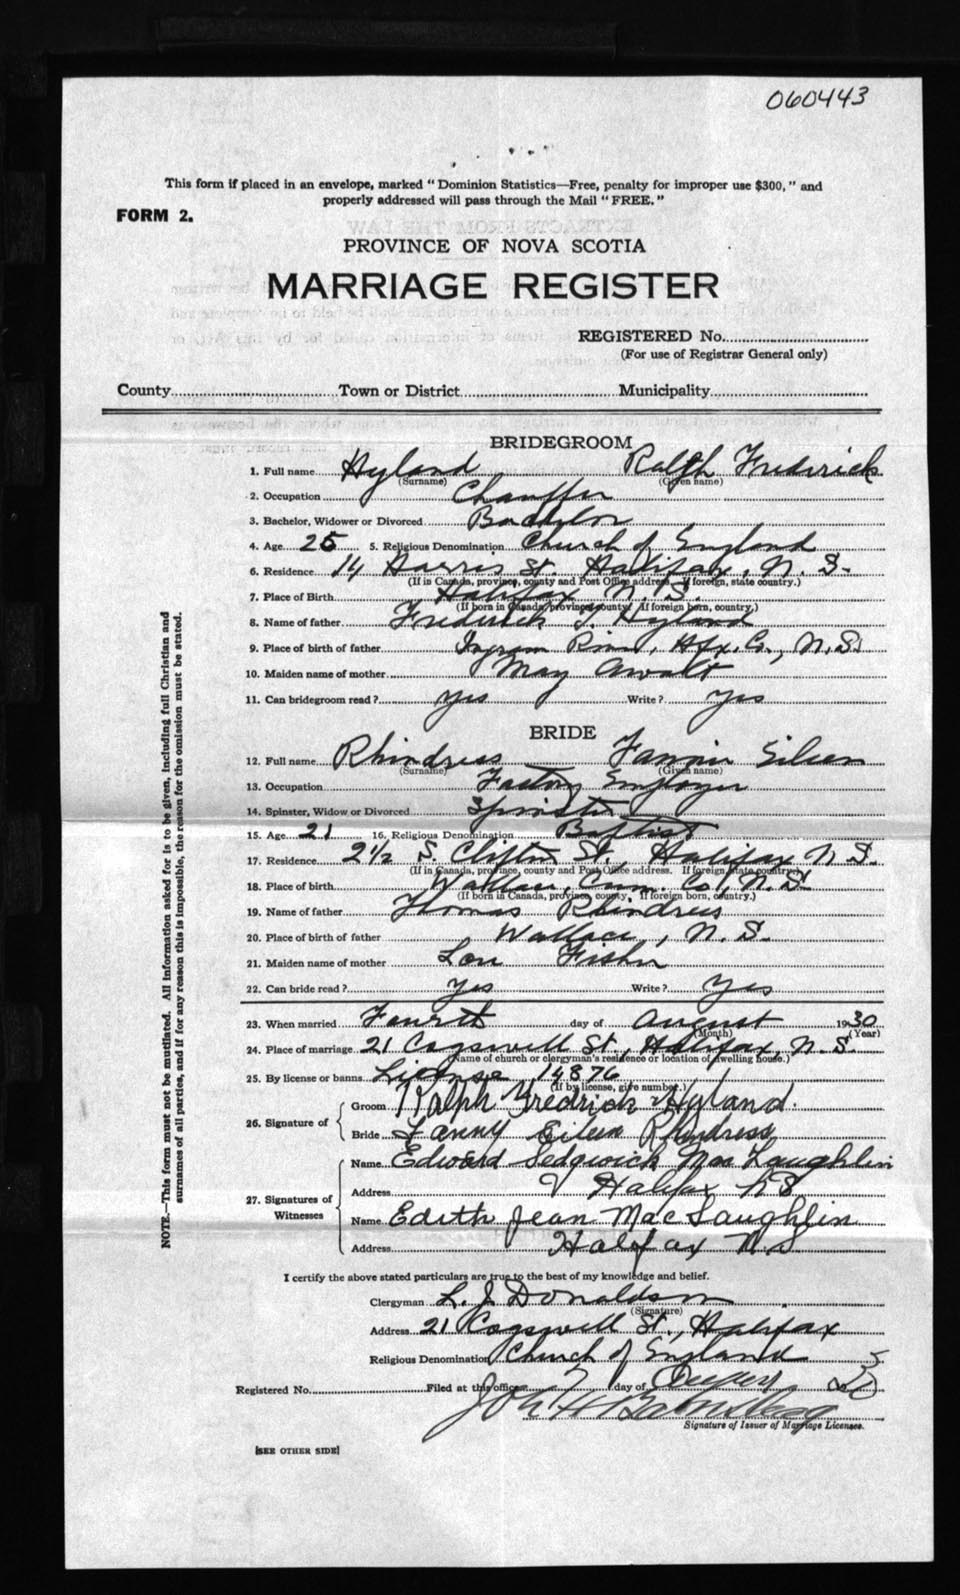 060443
This form if placed in an envelope, marked "Dominion Statistics—Free, penalty for improper use $300," and
properly addressed will pass through the Mail "FREE."
FORM 2.
PROVINCE OF NOVA SCOTIA
MARRIAGE REGISTER
REGISTERED No.
(For use of Registrar General only)
County Town or District Municipality
BRIDEGROOM
1. Full name Hyland Ralph Frederick
(Surname) (Given name)
2. Occupation Chauffer
3. Bachelor, Widower or Divorced Bachelor
4. Age 25 5. Religious Denomination Church of England
6. Residence 14 Harris St. Halifax, N. S.
(If in Canada, province, county and Post Office address. If foreign, state country.)
7. Place of Birth Halifax N. S.
(If born in Canada, province, county. If foreign born, country.)
8. Name of father Frederick J. Hyland
9. Place of birth of father Ingram River, Hfx. Co., N.S.
10. Maiden name of mother May Awalt
11. Can bridegroom read? Yes Write? Yes
BRIDE
12. Full name Rhindress Fannie Eileen
(Surname) (Given name)
13. Occupation Factory Employee
14. Spinster, Widow or Divorced Spinster
15. Age 21 16. Religious Denomination Baptist
17. Residence 2 1/2 S. Clifton St., Halifax N S.
(If in Canada, province, county and Post Office address. If foreign state country.)
18. Place of birth Wallace, Cum. Co., N.S.
(If born in Canada, province, county. If foreign born, country.)
19. Name of father Thomas Rhindress
20. Place of birth of father Wallace, N. S.
21. Maiden name of mother Fisher
22. Can bride read? Yes Write? Yes
23. When married Fourth day of August 1930
(Month) (Year)
24. Place of marriage 21 Cogswell St., Halifax, N. S.
(Name of church or clergyman's residence or location of dwelling house.)
25. By license or banns License 14876
(If by license, give number.)
26. Signature of
Groom Ralph Fredrick Hyland.
Bride Fanny Eileen Rhindress
27. Signatures of Witnesses
Name Edward Sedgwick MacLaughlin
Address Halifax NS
Name Edith Jean MacLaughlin
Address Halifax N.S
I certify the above stated particulars are true to the best of my knowledge and belief.
Clergyman L. J. Donaldson
(Signature)
Address 21 Cogswell St., Halifax
Religious Denomination Church of England
Registered No. Filed at this office 7 day of August 30
Signature of Issuer of Marriage Licenses.
[SEE OTHER SIDE]
NOTE.—This form must not be mutilated. All information asked for is to be given, including full Christian and
surnames of all parties, and if for any reason this is impossible, the reason for the omission must be stated.